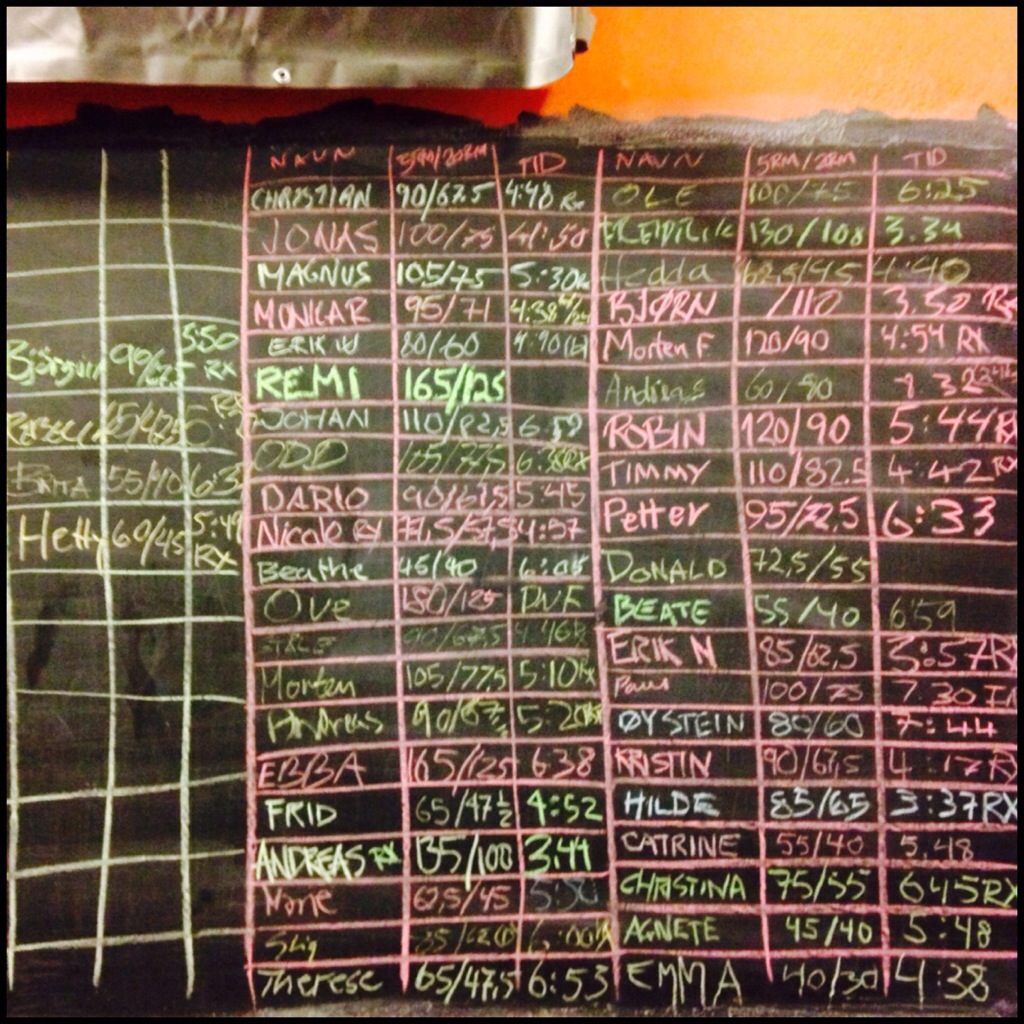 NAVN 5RM/20RM TID
CHRISTIAN 90/67.5 4:48 Rx
JONAS 100/75 4:50
MAGNUS 105/75 5:30
MONICAR 95/71 4:38
ERIK W 80/60
REMI 165/125
JOHAN 110/82,5 6:59
ODD 105/77,5 6:38RX
DARIO 90/67,5 5:45
Nicolo RX 77,5/57,5 4:57
Beathe 45/40 6:05
OVE 180/125 DNF
90/67,5 4:46
Morten 105/77,5 5:10Rx
Andreas 90/67,5 5:20RX
EBBA 165/125 638
FRID 65/47½ 4:52
ANDREAS RX 135/100 3.44
Marie 62,5/45 5:50
Stig
Therese 65/47,5 6:53
NAVN 5RM/20RM TID
OLE 100/75 6:25
FREDRIK 130/108 3.34
Hedda 62,5/45 4:40
BJØRN /110 3.50 Rx
Morten F 120/90 4:54 RX
Andreas 60/80
ROBIN 120/90 5:44RX
TIMMY 110/82.5 4:42RX
Petter 95/72.5 6:33
DONALD 72,5/55
BEATE 55/40 6:59
ERIK N 85/62,5 3:57RX
Paul 100/75 7.30
ØYSTEIN 80/60 7:44
KRISTIN 90/67,5 4:17RX
HILDE 85/65 3:37RX
CATRINE 55/40 5.48
CHRISTINA 75/55 645RX
AGNETE 45/40 5:48
EMMA 40/30 4:38
Björgvin 90/67,5 550 RX
55/40 6:3
Hetty 60/45 5:49 RX